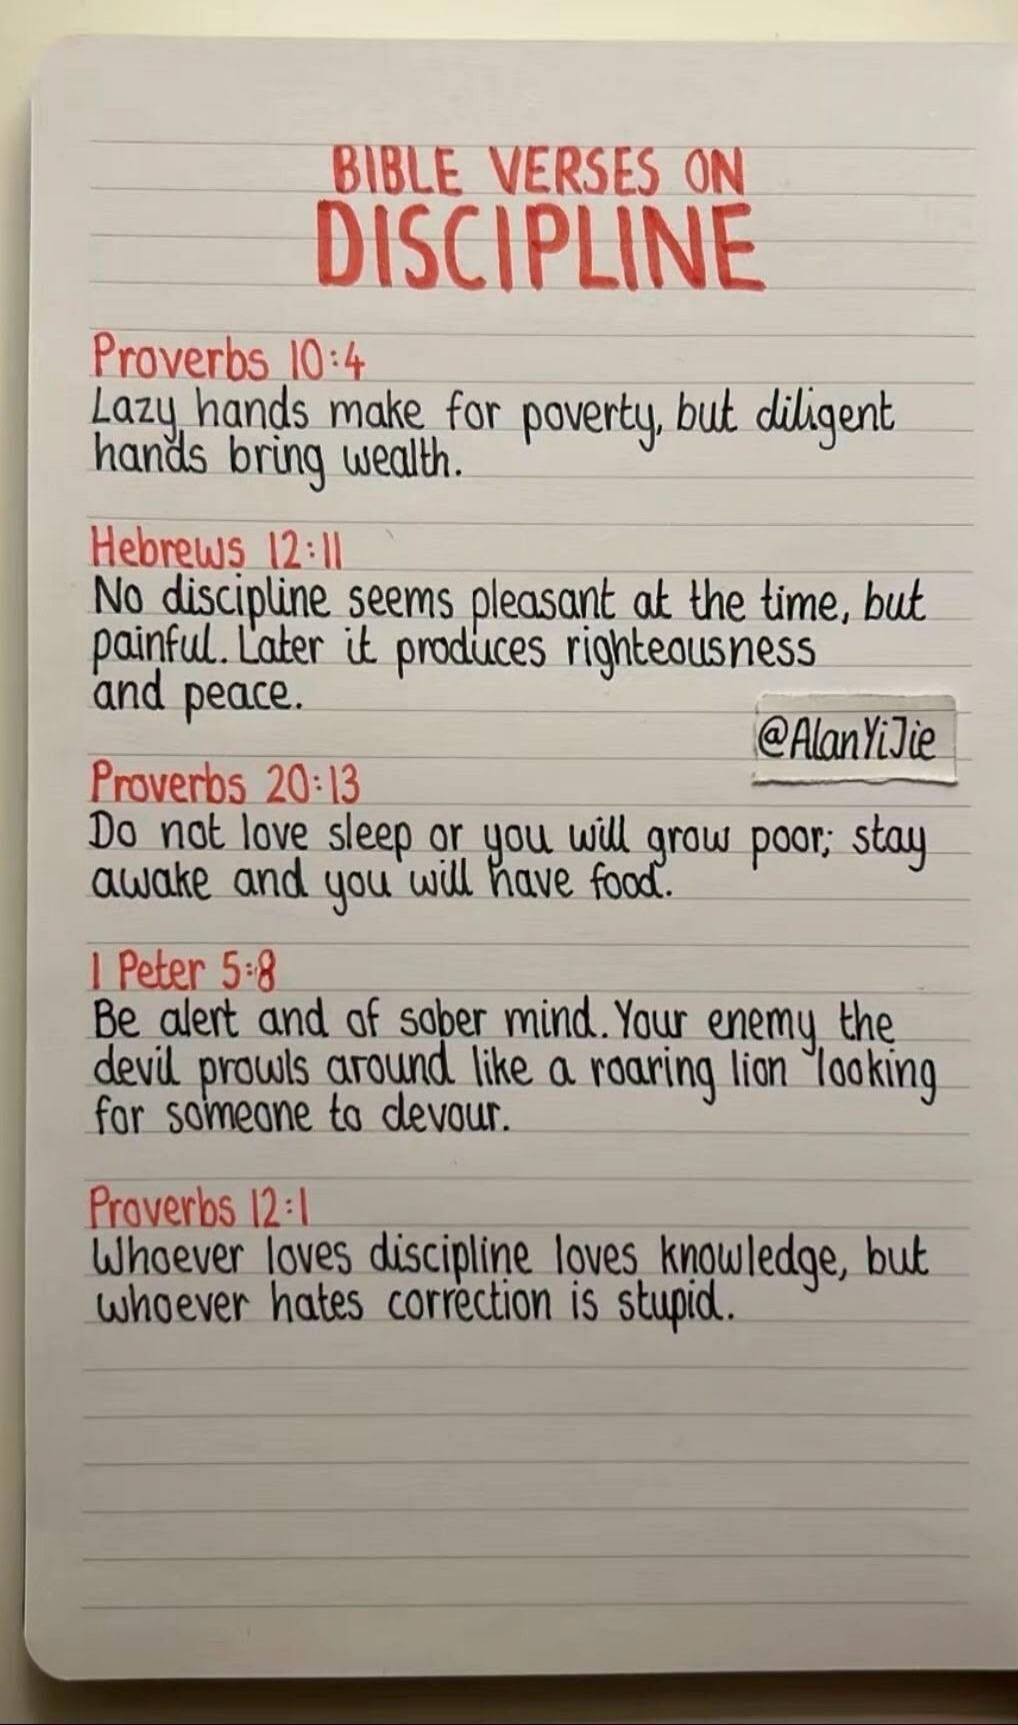 BIBLE VERSES ON
DISCIPLINE
Proverbs 10:4
Lazy hands make for poverty, but diligent
hands bring wealth.
Hebrews 12:11
No discipline seems pleasant at the time, but
painful. Later it produces righteousness
and peace.
@AlanYiJie
Proverbs 20:13
Do not love sleep or you will grow poor; stay
awake and you will have food.
1 Peter 5:8
Be alert and of sober mind. Your enemy the
devil prowls around like a roaring lion looking
for someone to devour.
Proverbs 12:1
Whoever loves discipline loves knowledge, but
whoever hates correction is stupid.